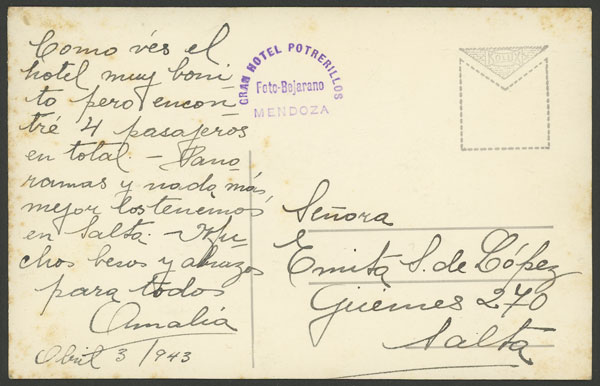 Como vés el
hotel muy boni-
to pero encon-
tré 4 pasajeros
en total - Pano-
ramas y nada más,
mejor los tenemos
en Salta. - Mu-
chos besos y abrazos
para todos
Amalia
Abril 3/943
GRAN HOTEL POTRERILLOS
Foto-Bejarano
MENDOZA
KODAK
Señora
Emita S. de López
Güemes 270
Salta